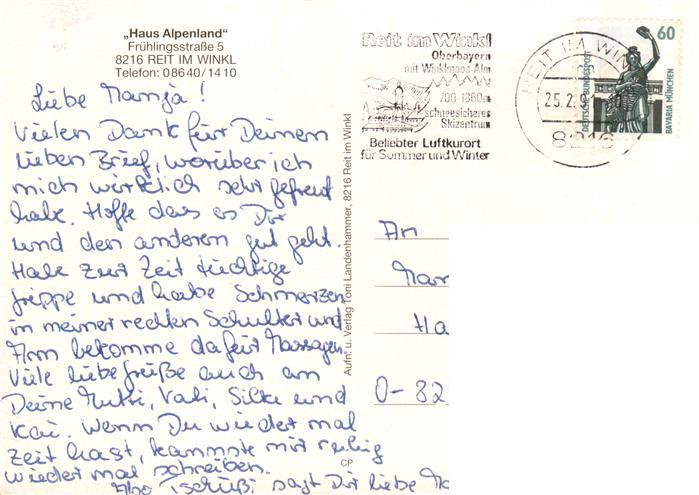 „Haus Alpenland"
Frühlingsstraße 5
8216 REIT IM WINKL
Telefon: 08640/1410
Liebe Manja!
Vielen Dank für Deinen
lieben Brief, worüber ich
mich wirklich sehr gefreut
habe. Hoffe dass es Dir
und den anderen gut geht.
Habe zur Zeit tüchtige
Grippe und habe Schmerzen
in meiner rechten Schulter und
Arm bekomme dafür Massagen
Viele liebe Grüße auch an
Deine Mutti, Vati, Silke und
Kai. Wenn Du wieder mal
Zeit hast, kannste mir ruhig
wieder mal schreiben.
Also Tschüßi sagt Dir liebe
Aufn. u. Verlag Toni Landenhammer, 8216 Reit im Winkl
CP
Reit im Winkl
Oberbayern
mit Winklmoos-Alm
700-1860m
schneesicheres
Skizentrum
Beliebter Luftkurort
für Sommer und Winter
REIT IM WINKL
25.2.91
8216
60
DEUTSCHE BUNDESPOST
BAVARIA MÜNCHEN
An
Mar
Ha
O-82